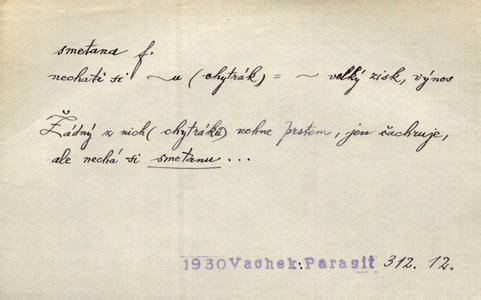 smetana f.
nechati si ~u (chytrák) = ~ velký zisk, výnos
Žádný z nich (chytráků) nehne prstem, jen čachruje,
ale nechá si smetanu ...
1930 Vachek: Parasit 312. 12.